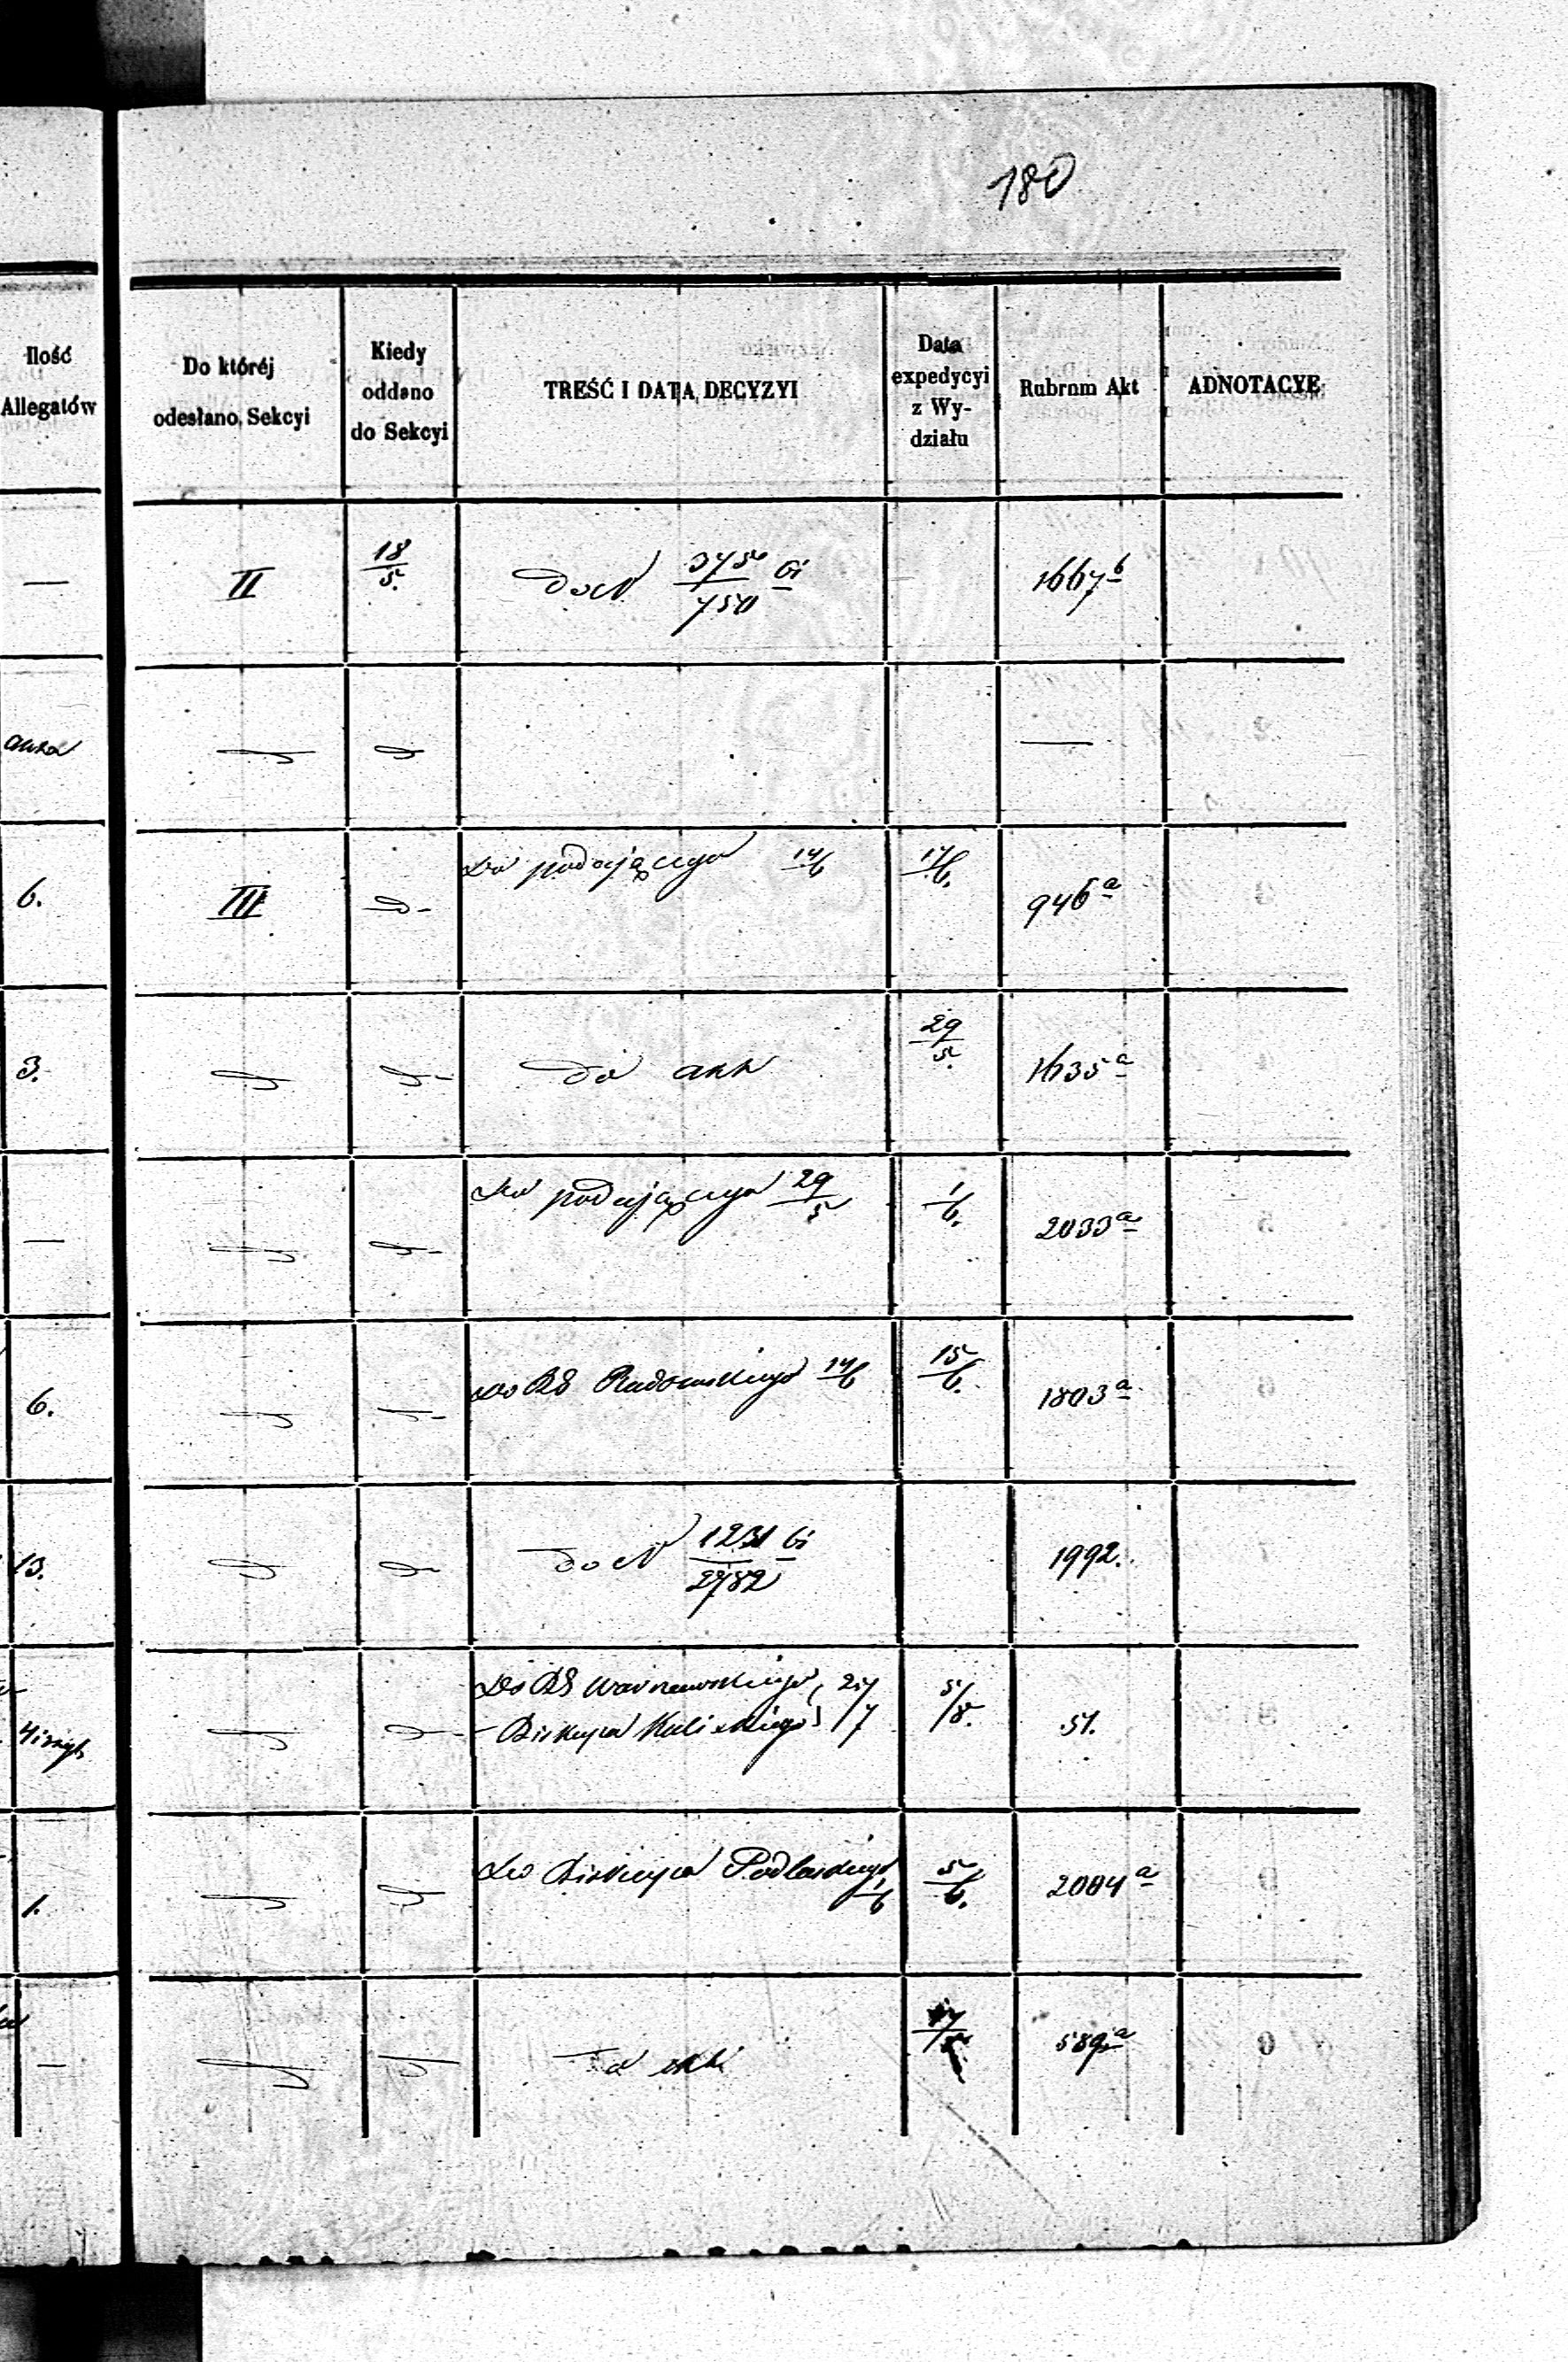 180
Ilość Allegatów | Do któréj odesłano Sekcyi | Kiedy oddano do Sekcyi | TREŚĆ I DATA DECYZYI | Data expedycyi z Wydziału | Rubrum Akt | ADNOTACYE
— | II | 18/5. | do N 3750/750 Gi | | 1667 b
— | — | —
6. | III | do podającego 14/6 | 17/6. | 946 a
3. | do akt | 29/5. | 1635 a
— | do podającego 29/5 | 1/6. | 2033 a
6. | do RG Radomskiego 14/6 | 15/6. | 1803 a
13. | do N 1231/2782 Gi | 1992.
do RG Warszawskiego, 27/7 | 5/8. | 51.
Biskupa Kaliskiego
1. | do Biskupa Podlaskiego 1/6 | 5/6. | 2004 a
— | do akt | 589 a